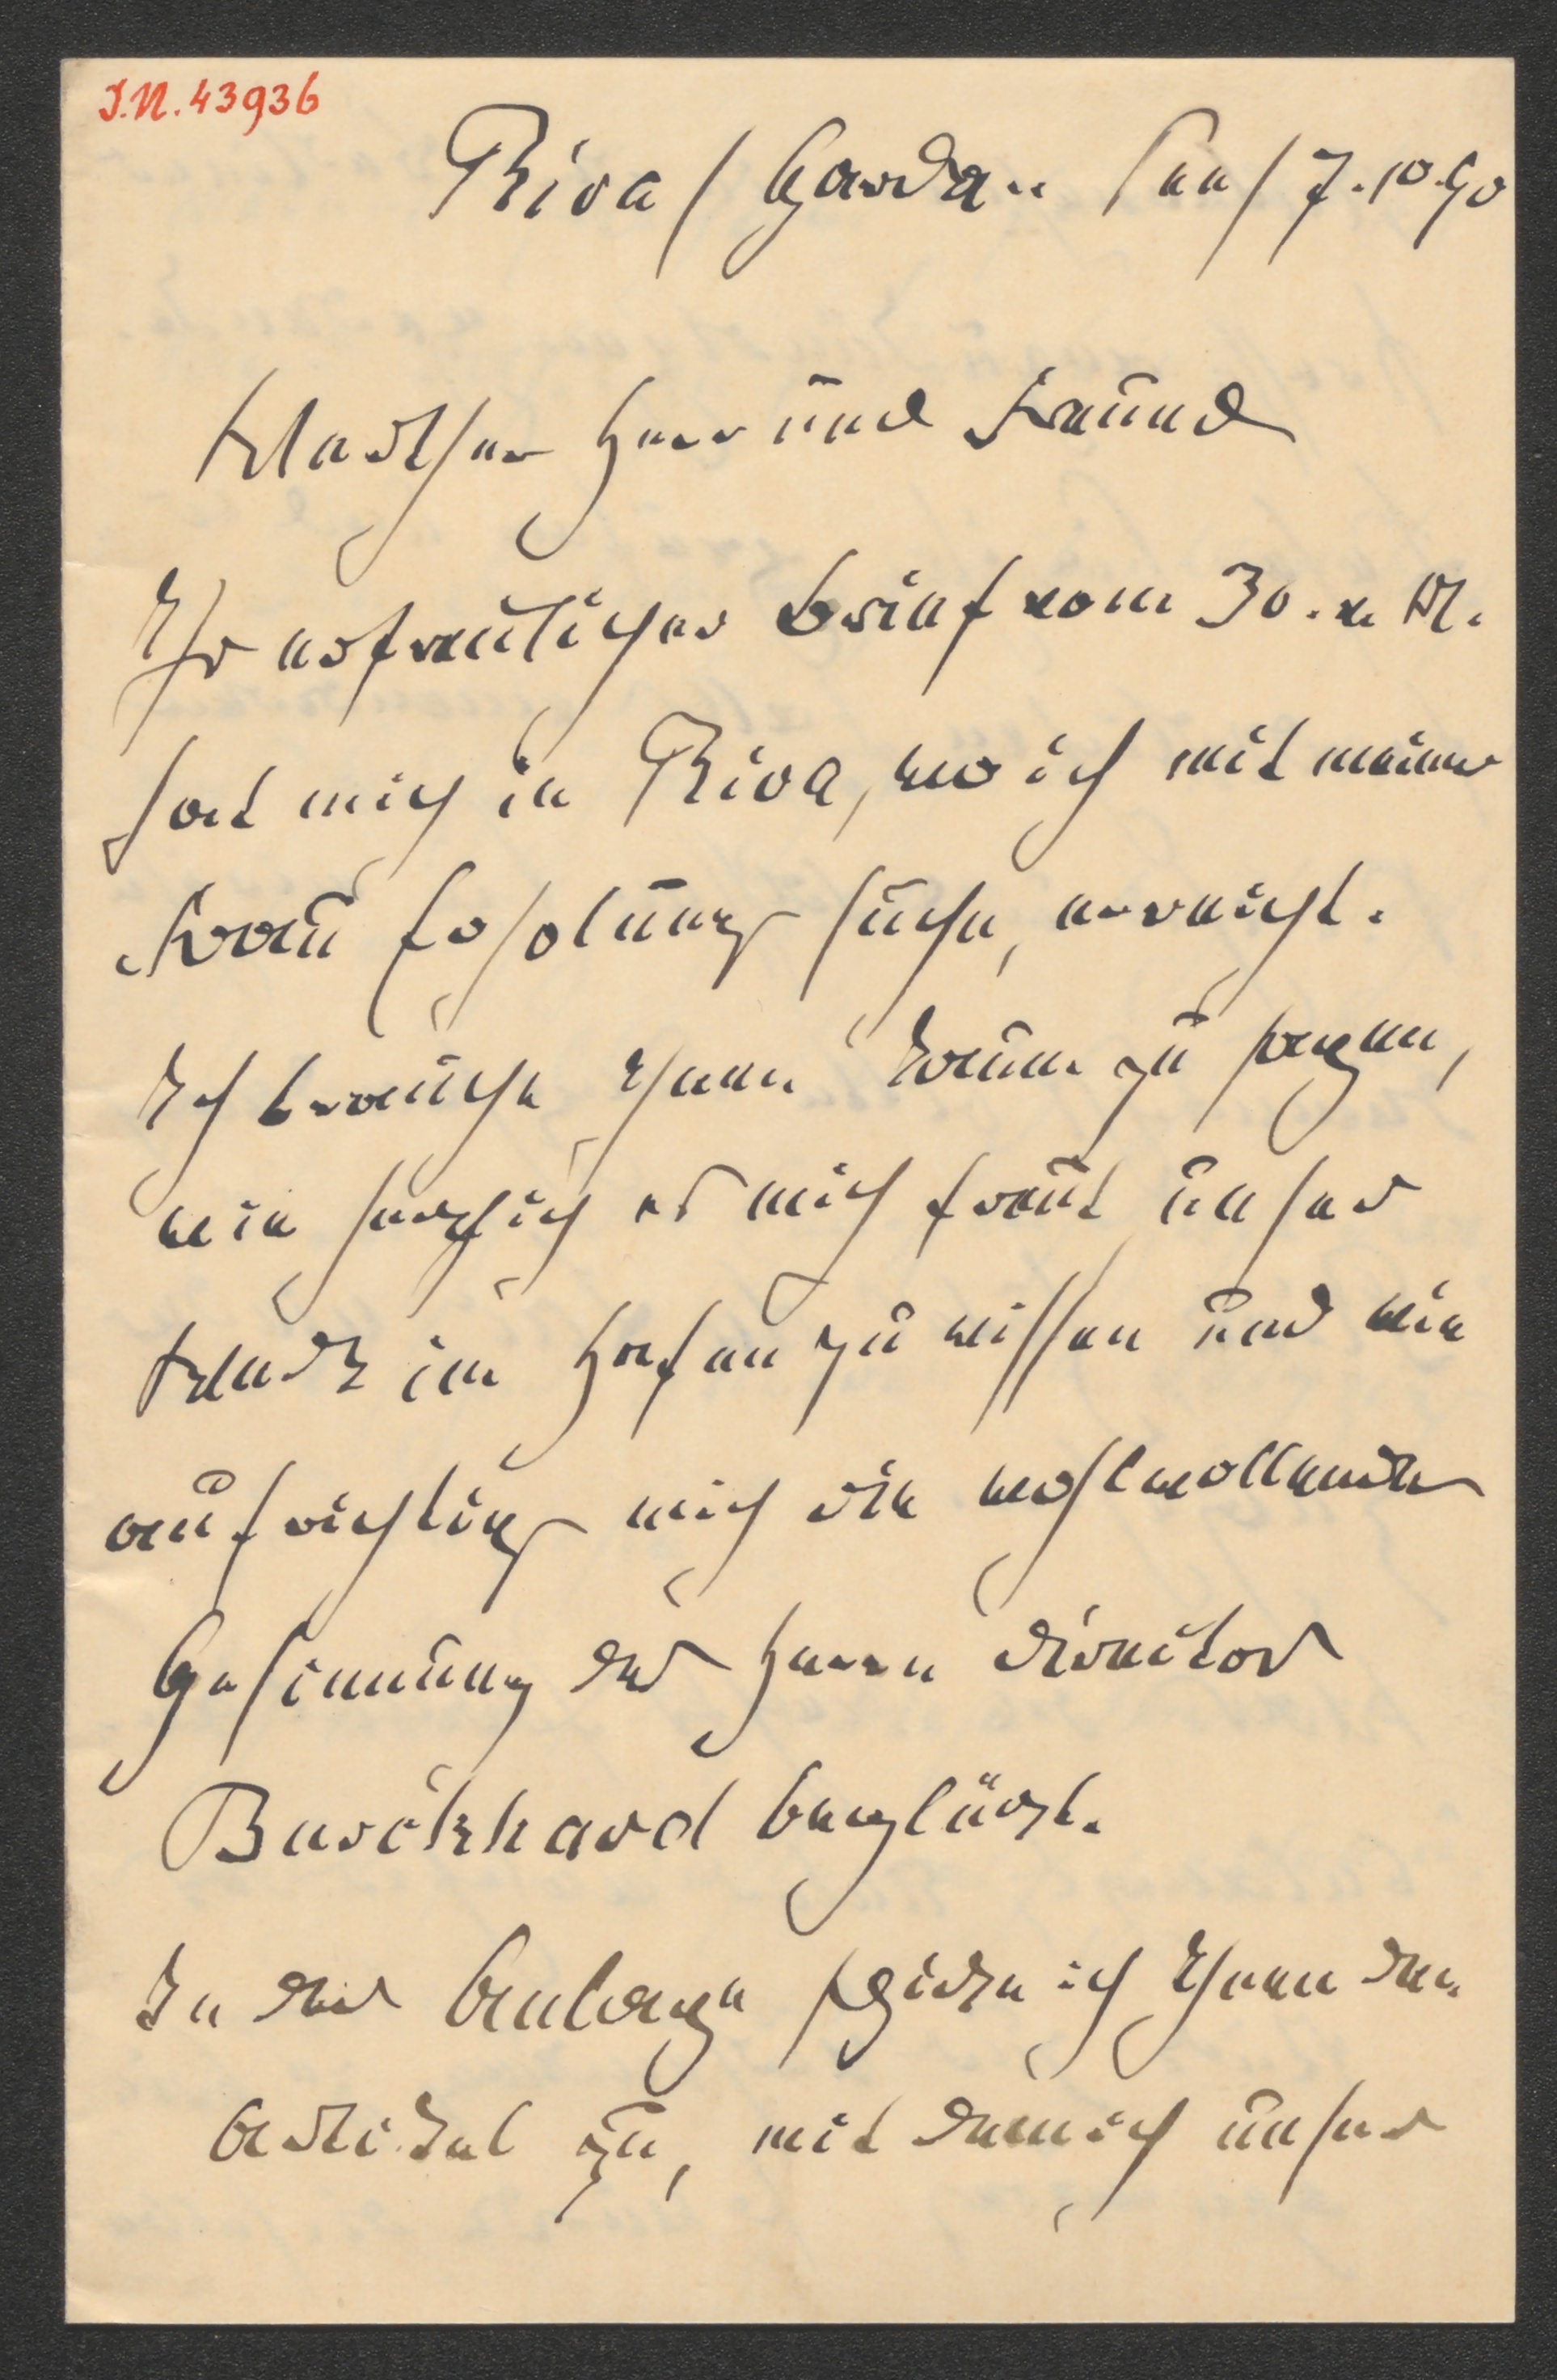 I.N. 43936
Riva / Garda-See / 7.10.90
Werther Herr und Freund
Ihr erfreulicher Brief vom 30. v. M.
hat mich in Riva, wo ich mit meiner
Frau Erholung suche, erreicht.
Ich brauche Ihnen kaum zu sagen,
wie herzlich es mich freut unser
Werk im Hafen zu wissen und wie
aufrichtig mich die wohlwollende
Gesinnung des Herrn Directors
Burckhard beglückt.
In der Anlage schicke ich Ihnen den
Artikel zu, mit dem ich unser